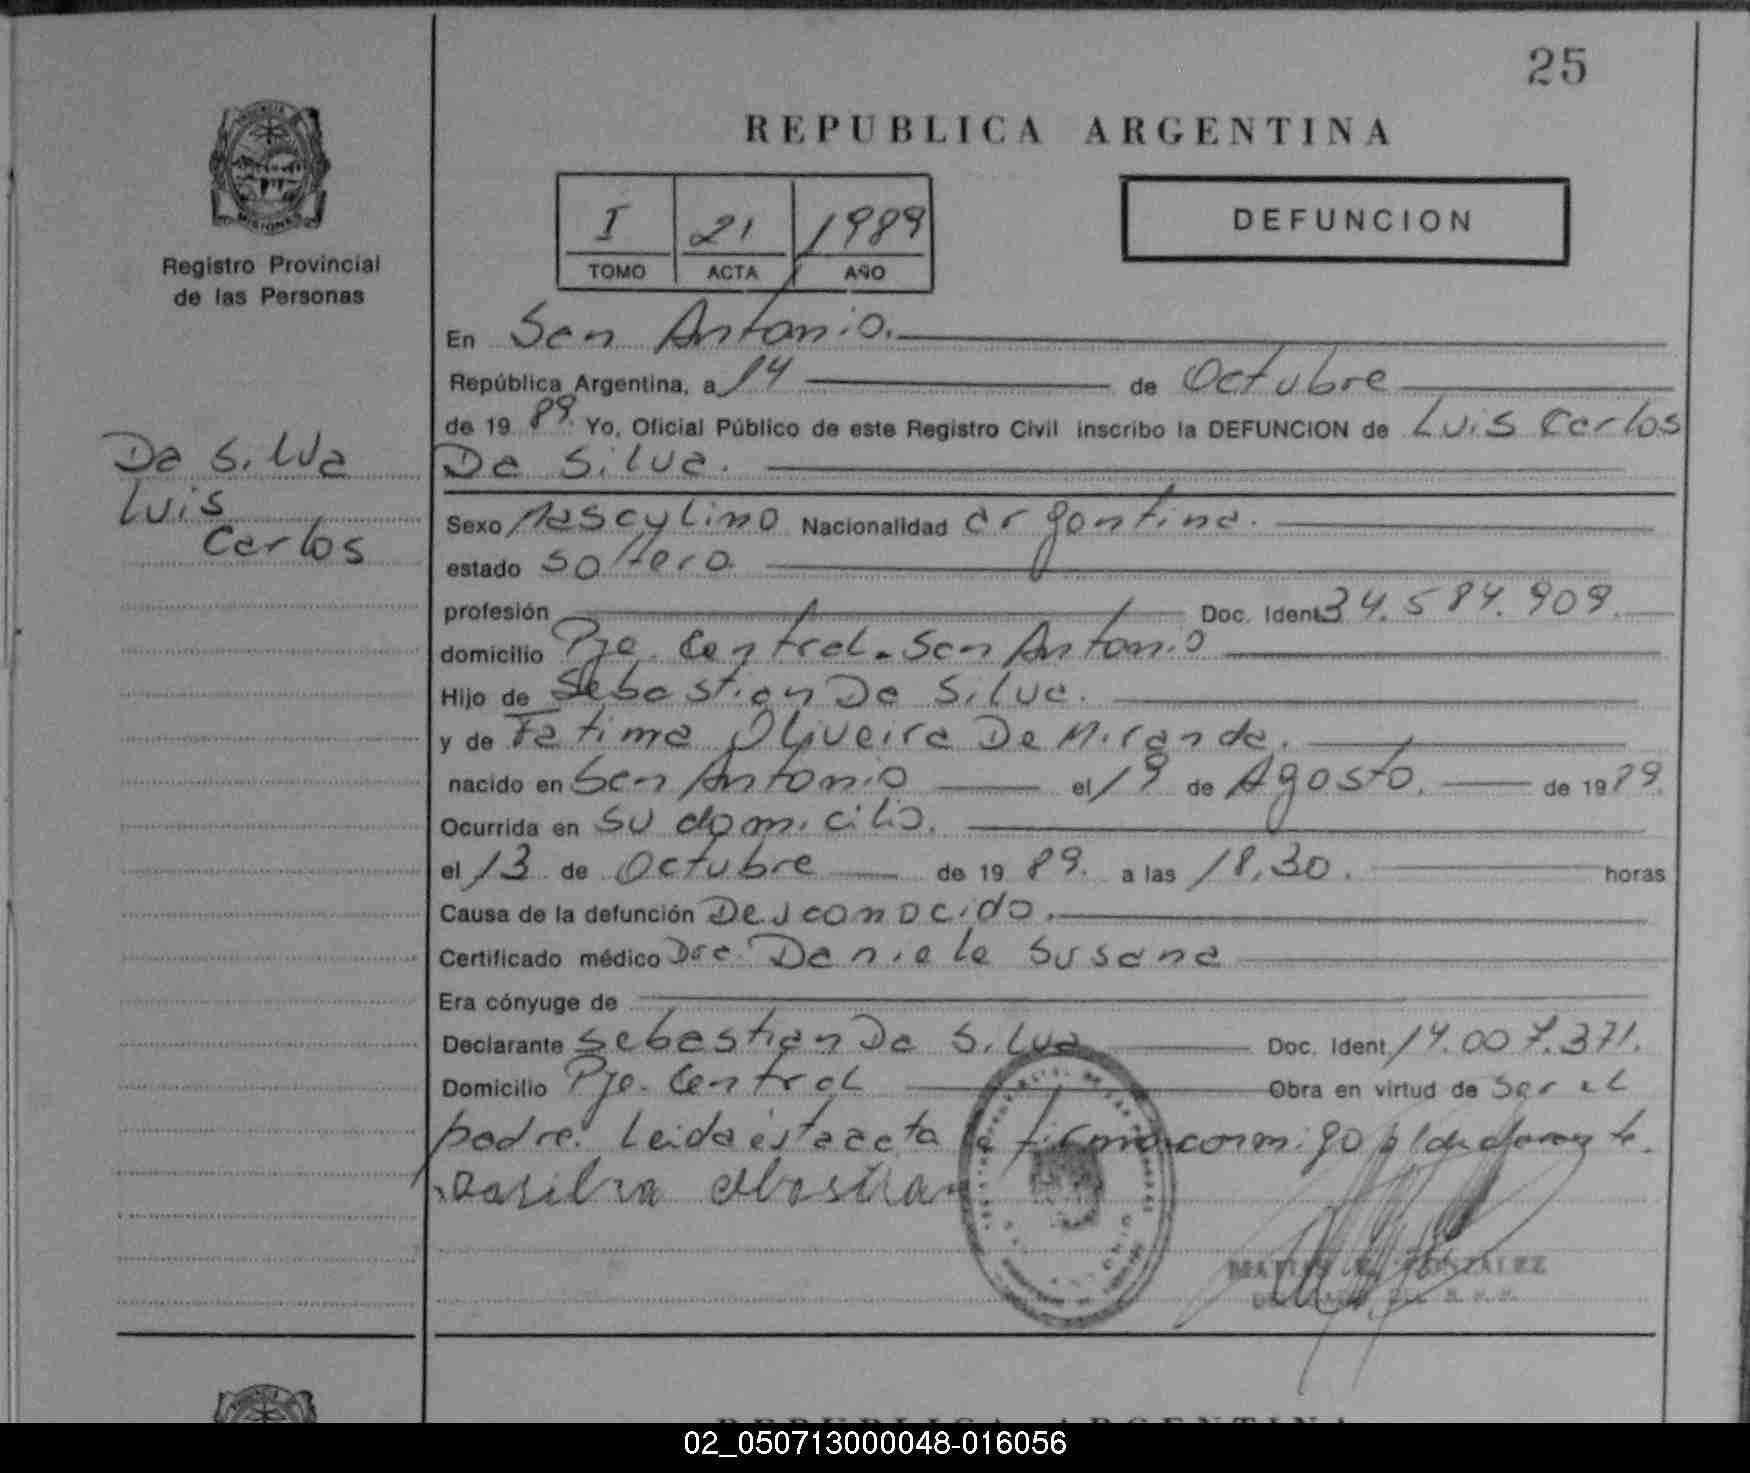 25
REPUBLICA ARGENTINA
PROVINCIA
MISIONES
Registro Provincial
de las Personas
I 21 1989
TOMO ACTA AÑO
DEFUNCION
En San Antonio.
República Argentina, a 14 de Octubre
de 19 89. Yo, Oficial Público de este Registro Civil inscribo la DEFUNCION de Luis Carlos
Da Silva.
Da Silva
Luis
Carlos
Sexo Masculino Nacionalidad argentina.
estado soltero.
profesión Doc. Ident. 34.584.909.
domicilio Pje. Central - San Antonio
Hijo de Sebastian Da Silva.
y de Fatima Oliveira De Miranda.
nacido en San Antonio el 19 de Agosto. de 1989.
Ocurrida en su domicilio.
el 13 de Octubre de 19 89. a las 18,30. horas
Causa de la defunción Desconocido.
Certificado médico Dra. Daniela Susana
Era cónyuge de
Declarante Sebastian Da Silva Doc. Ident. 14.007.371.
Domicilio Pje. Central Obra en virtud de ser el
padre. Leida esta acta la firma conmigo el declarante.
GONZALEZ
REPUBLICA ARGENTINA
02_050713000048-016056